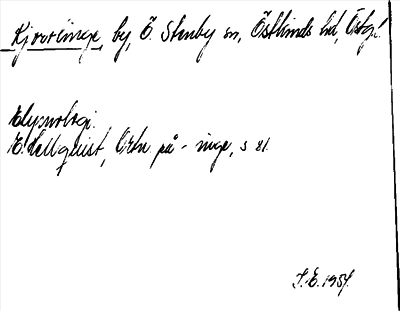 Kjovelinge, by, Ö. Stenby sn, Östkinds hd, Östgl.
Etymologi.
E. Hellquist, Ortn. på -inge, s 81.
S.E. 1954.